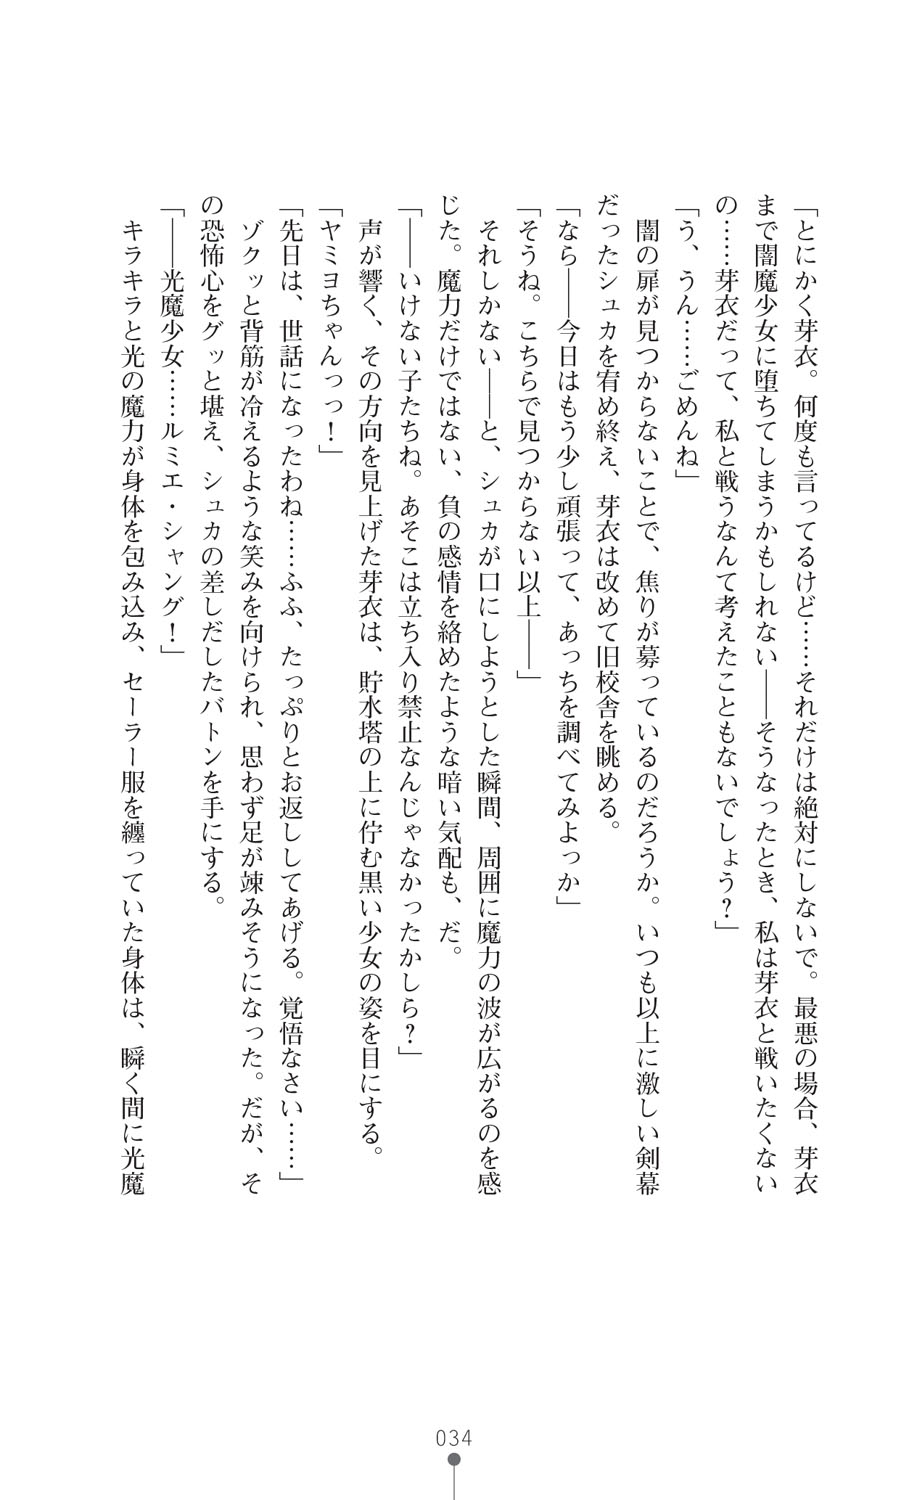 「とにかく芽衣。何度も言ってるけど……それだけは絶対にしないで。最悪の場合、芽衣
まで闇魔少女に堕ちてしまうかもしれない――そうなったとき、私は芽衣と戦いたくない
の……芽衣だって、私と戦うなんて考えたこともないでしょう？」
「う、うん……ごめんね」
　闇の扉が見つからないことで、焦りが募っているのだろうか。いつも以上に激しい剣幕
だったシュカを宥め終え、芽衣は改めて旧校舎を眺める。
「なら――今日はもう少し頑張って、あっちを調べてみよっか」
「そうね。こちらで見つからない以上――」
　それしかない――と、シュカが口にしようとした瞬間、周囲に魔力の波が広がるのを感
じた。魔力だけではない、負の感情を絡めたような暗い気配も、だ。
「――いけない子たちね。あそこは立ち入り禁止なんじゃなかったかしら？」
　声が響く、その方向を見上げた芽衣は、貯水塔の上に佇む黒い少女の姿を目にする。
「ヤミヨちゃんっっ！」
「先日は、世話になったわね……ふふ、たっぷりとお返ししてあげる。覚悟なさい……」
　ゾクッと背筋が冷えるような笑みを向けられ、思わず足が竦みそうになった。だが、そ
の恐怖心をグッと堪え、シュカの差しだしたバトンを手にする。
「――光魔少女……ルミエ・シャング！」
　キラキラと光の魔力が身体を包み込み、セーラー服を纏っていた身体は、瞬く間に光魔
034